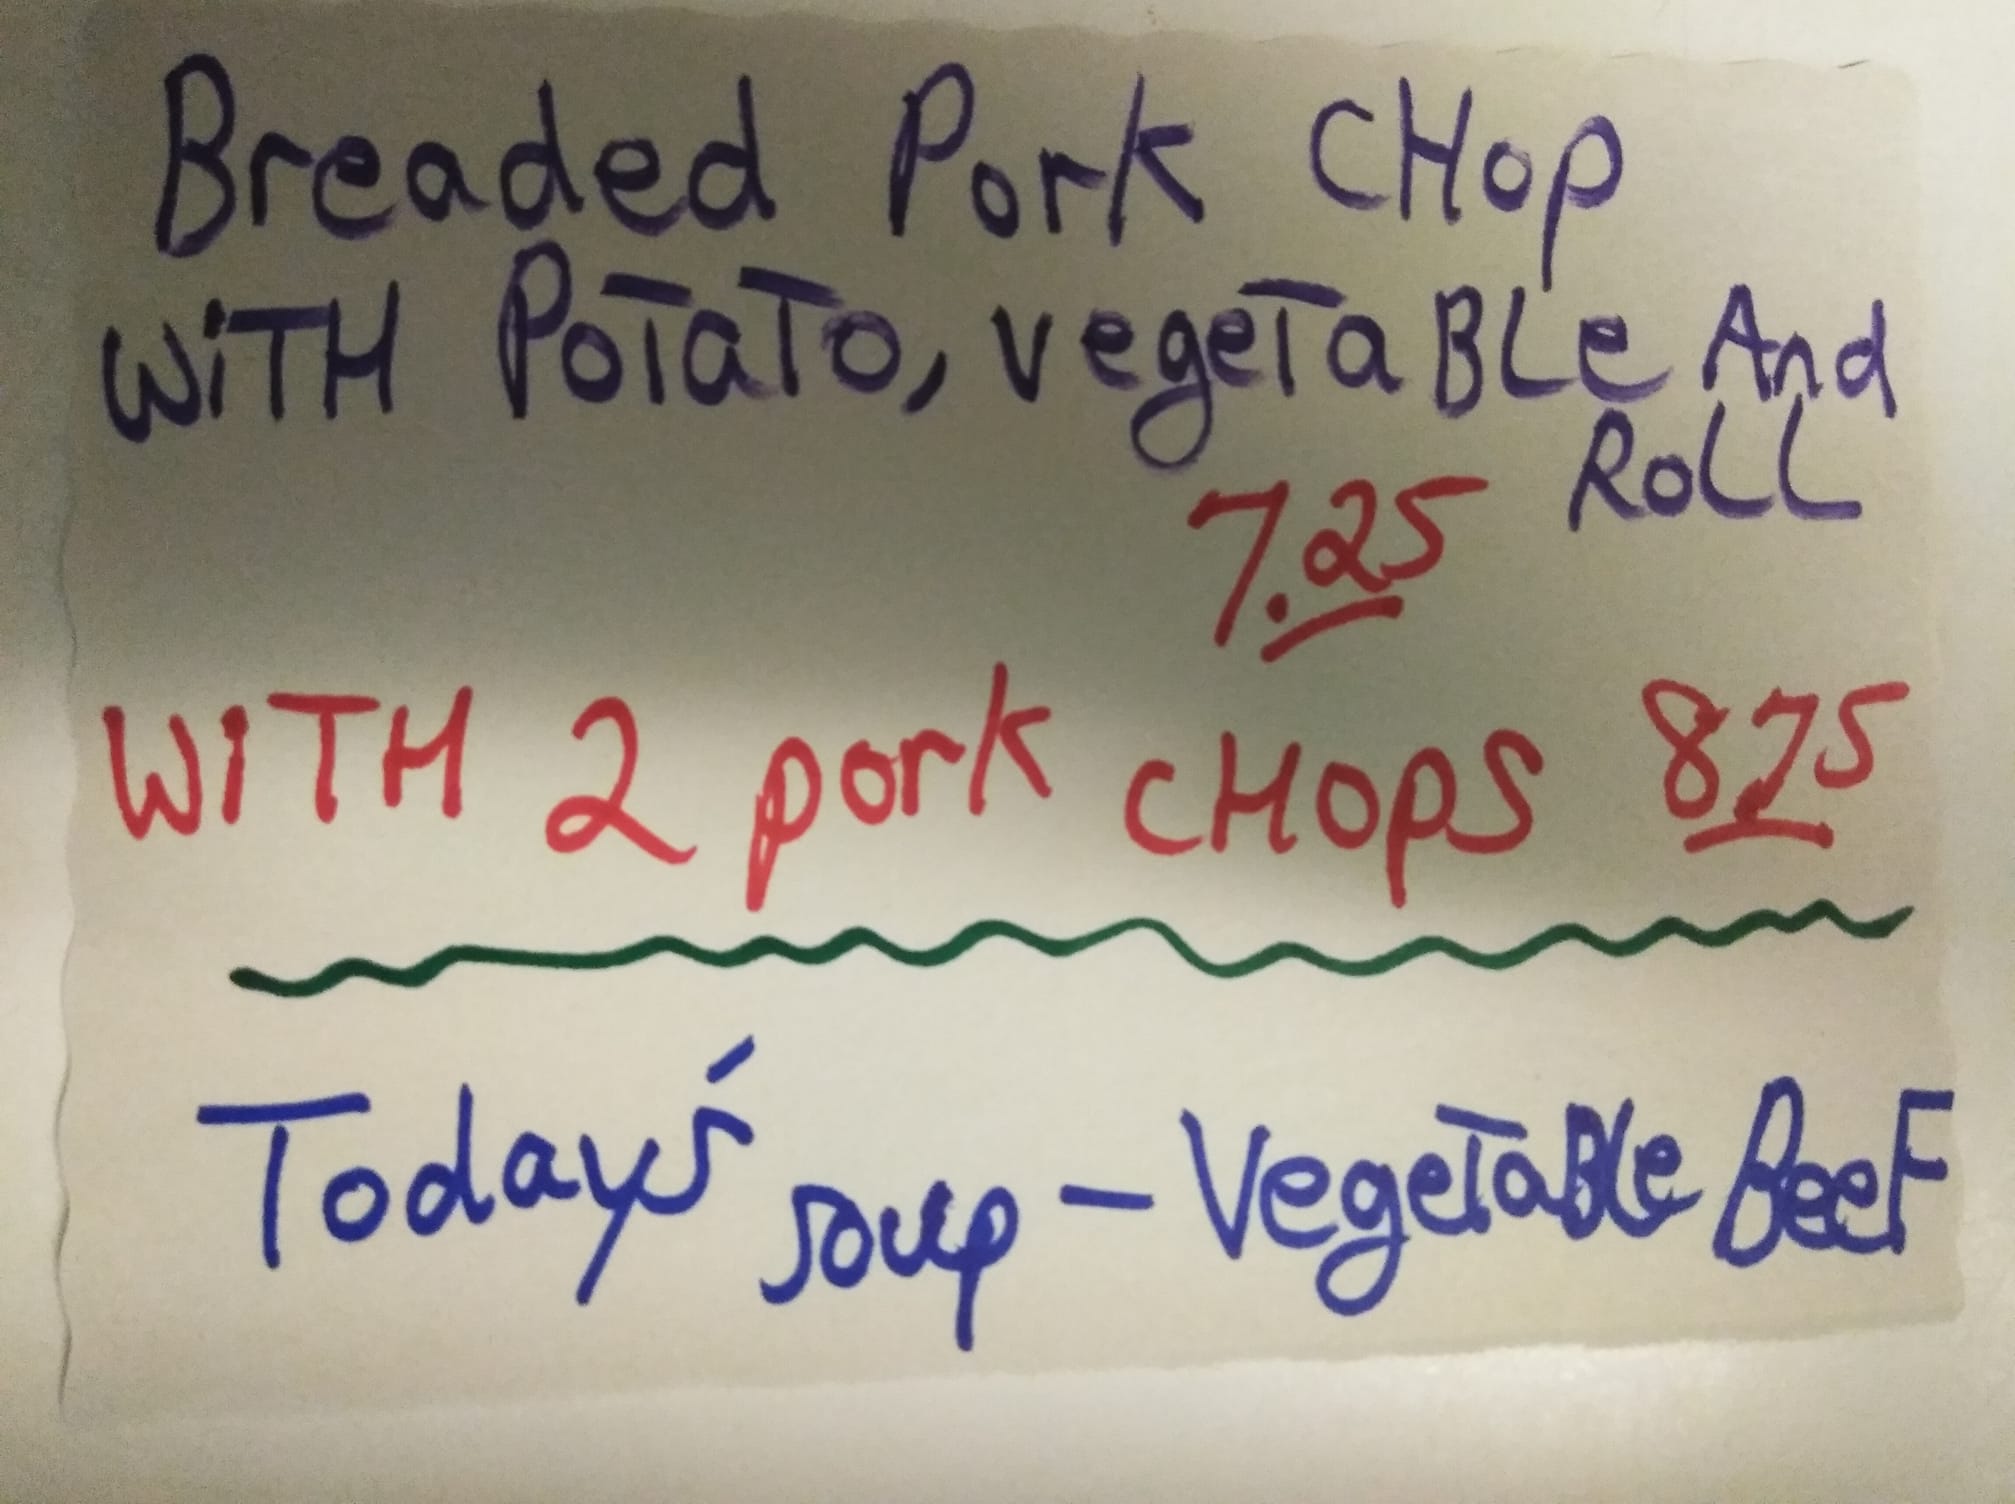 Breaded Pork CHop
WiTH PoTaTo, vegeTaBLe And
RoLL
7.25
WITH 2 pork CHOpS 875
Today's soup - VegeTaBle BeeF